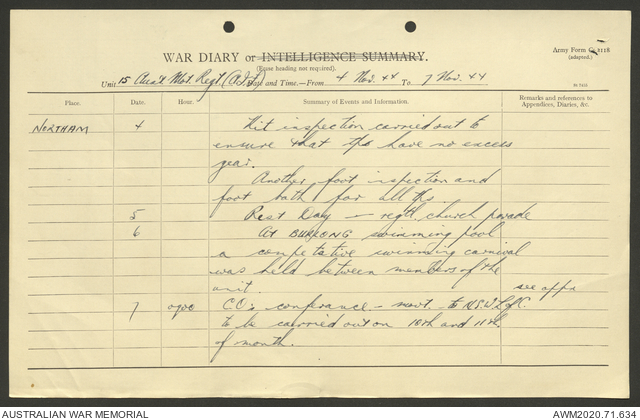 Army Form C. 2118
(adapted.)
WAR DIARY or INTELLIGENCE SUMMARY.
(Erase heading not required).
Unit 15 Aust Mot Regt (AIF) Date and Time.—From 4 Nov. 44 To 7 Nov. 44
Place. Date. Hour. Summary of Events and Information. Remarks and references to
Appendices, Diaries, &c.
NORTHAM 4 Kit inspection carried out to
ensure that tps have no excess
gear.
Another foot inspection and
foot bath for all tks.
5 Rest Day - regtl church parade
6 At BURLONG swimming pool
a competative swimming carnival
was held between members of the
unit. see appx
7 0900 CO's conferance - movt. to N.S.W. L of C.
to be carried out on 10th and 11th
of month.
AUSTRALIAN WAR MEMORIAL AWM2020.71.634